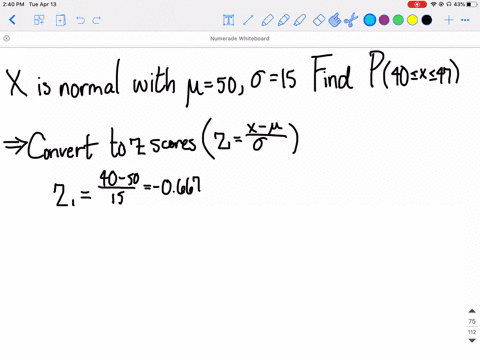 2:40 PM Tue Apr 13
43%
Numerade Whiteboard
X is normal with μ=50, σ=15 Find P(40≤x≤47)
⇒ Convert to z scores (Z=x-μ/σ)
Z₁ = 40-50/15 = -0.667
75
112